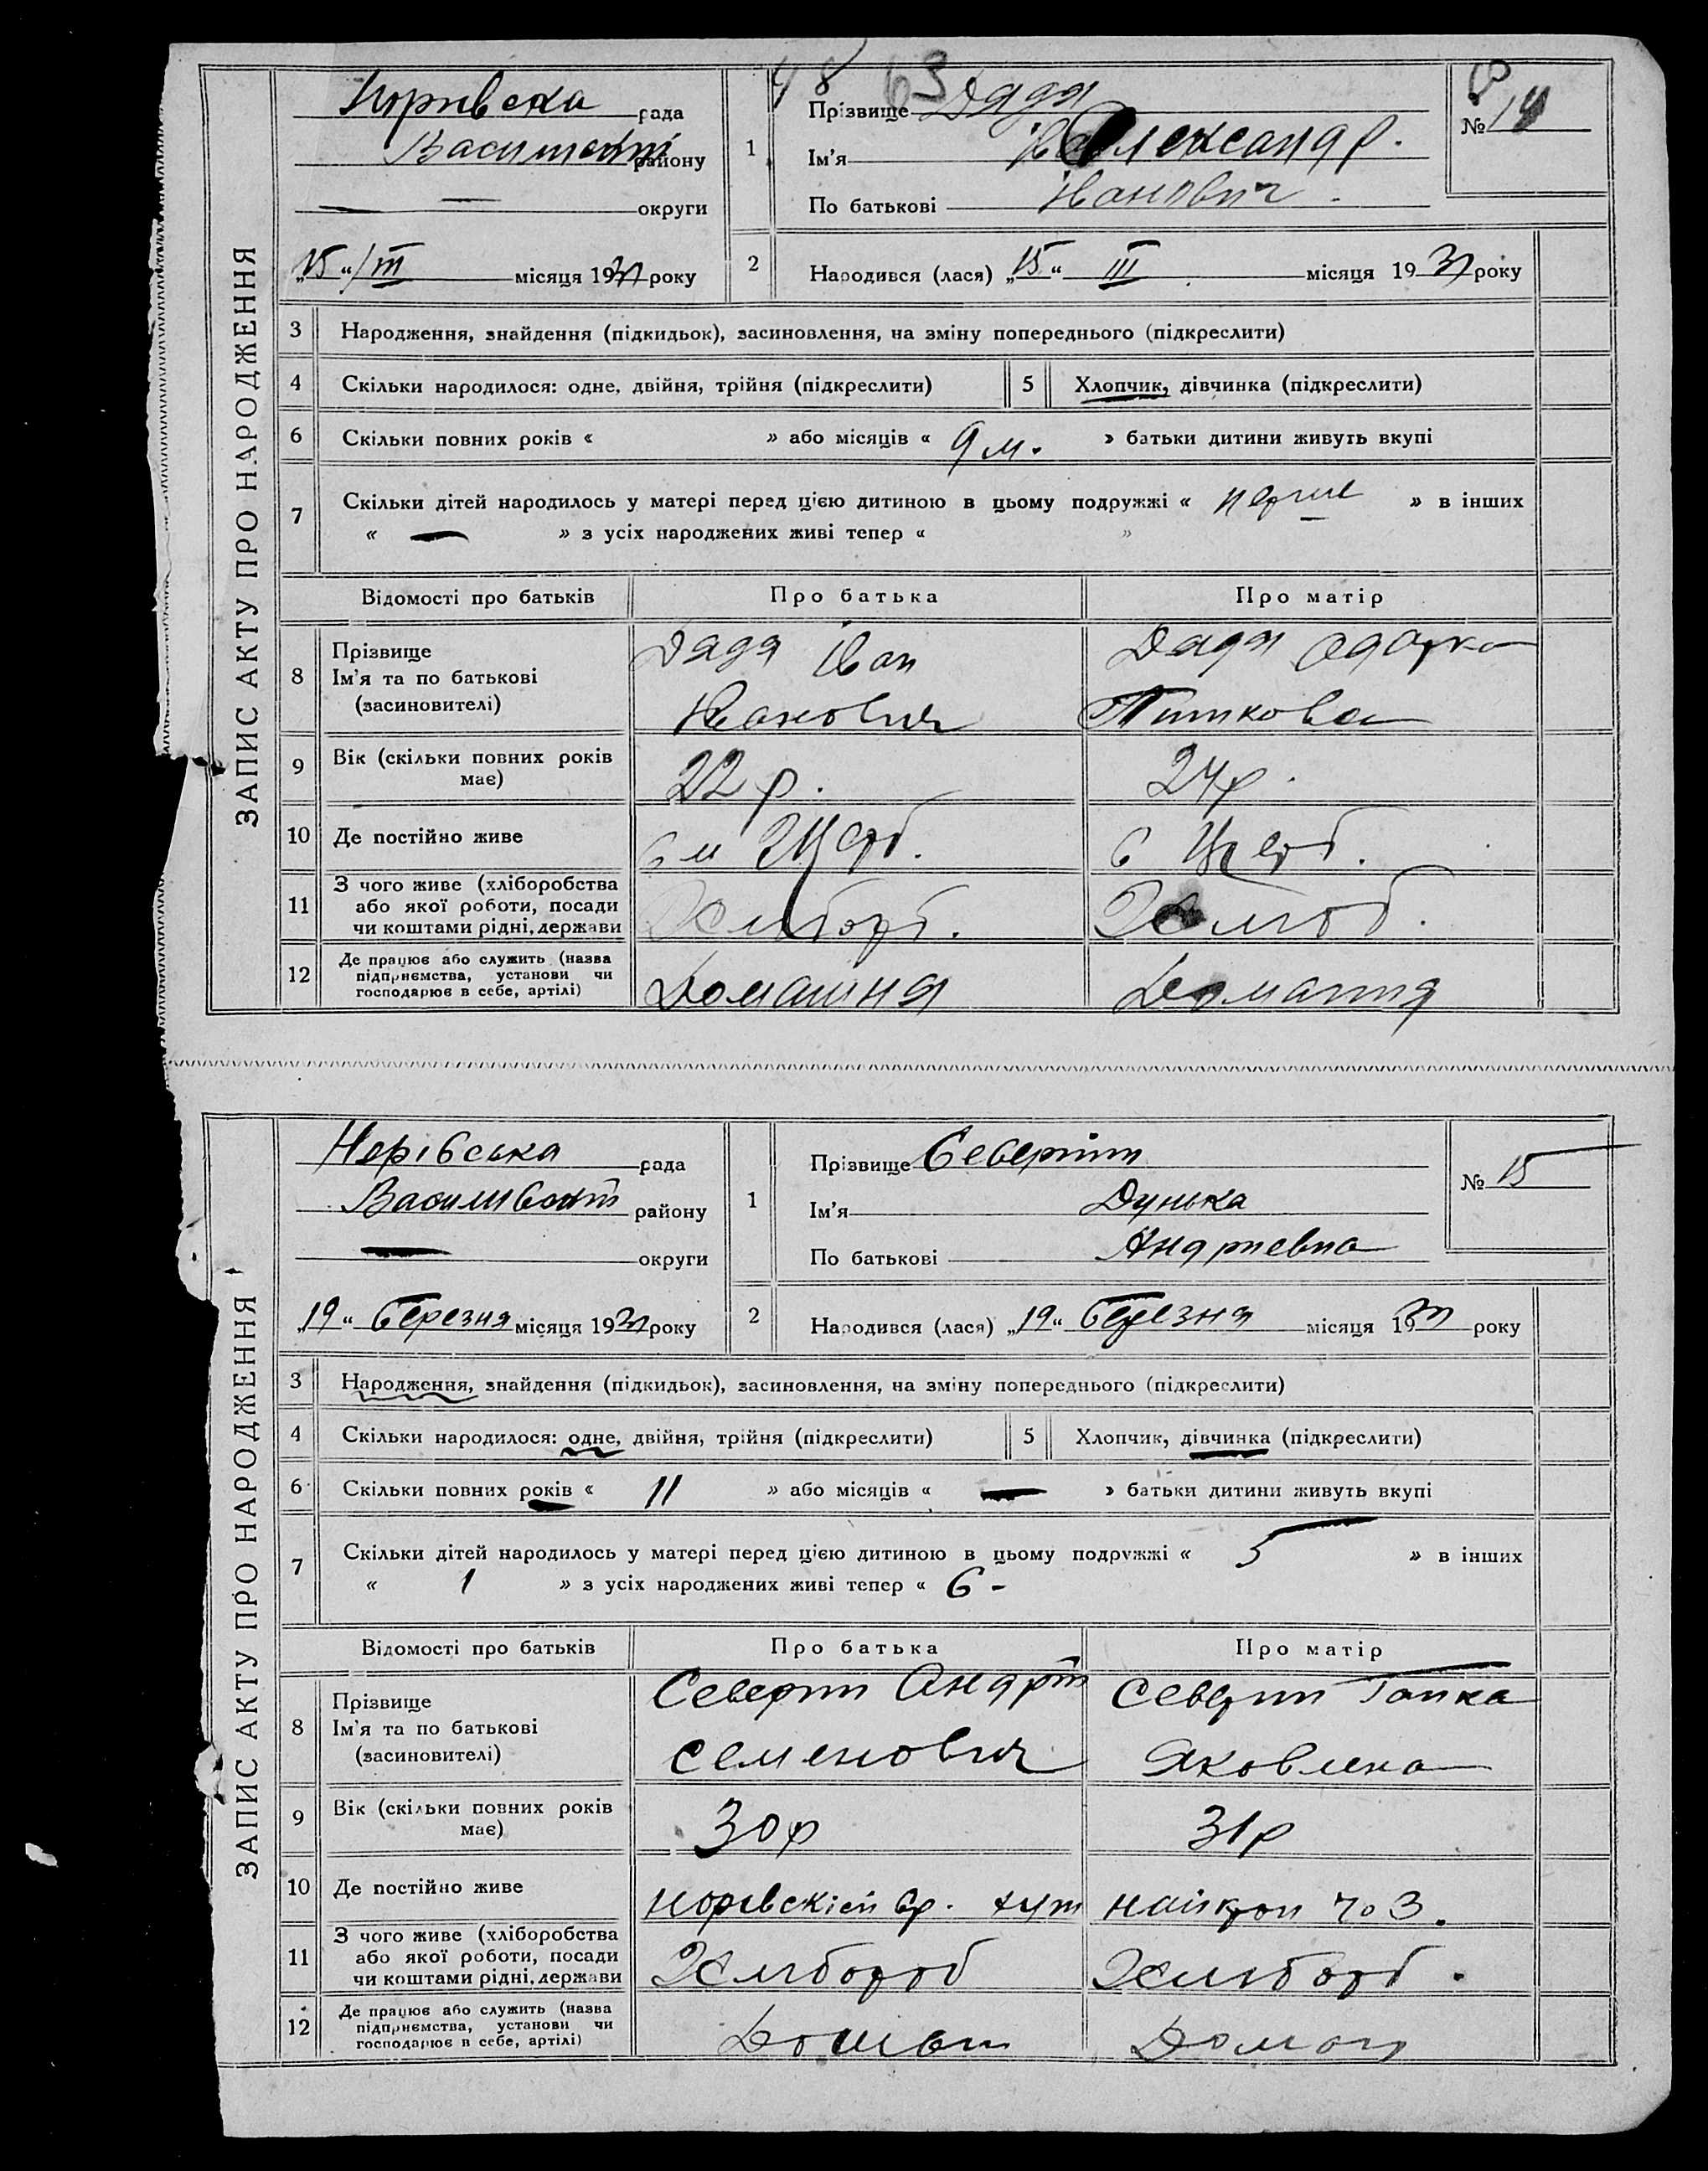 ЗАПИС АКТУ ПРО НАРОДЖЕННЯ
48 63
рада
району
— — округи
„15“/III місяця 1931 року
1 Прізвище Дядя
Ім'я Олександр.
По батькові Іванович.
№ 14
2 Народився (лася) „15“ III місяця 1931 року
3 Народження, знайдення (підкидьок), засиновлення, на зміну попереднього (підкреслити)
4 Скільки народилося: одне, двійня, трійня (підкреслити) 5 Хлопчик, дівчинка (підкреслити)
6 Скільки повних років « » або місяців « 9 м. » батьки дитини живуть вкупі
7 Скільки дітей народилось у матері перед цією дитиною в цьому подружжі « перше » в інших
« — » з усіх народжених живі тепер « »
Відомості про батьків Про батька Про матір
8 Прізвище Ім'я та по батькові (засиновителі) Дядя Іван Іванович Дядя Одарка
9 Вік (скільки повних років має) 22 р. 24 р.
10 Де постійно живе
11 З чого живе (хліборобства або якої роботи, посади чи коштами рідні, держави Хлібороб. Хліб.
12 Де працює або служить (назва підприємства, установи чи господарює в себе, артілі) Домашня Домашня
ЗАПИС АКТУ ПРО НАРОДЖЕННЯ
Норівська рада
району
— округи
„19“ березня місяця 1931 року
1 Прізвище Северин
Ім'я Дунька
По батькові Андріевна
№ 15
2 Народився (лася) „19“ березня місяця 1931 року
3 Народження, знайдення (підкидьок), засиновлення, на зміну попереднього (підкреслити)
4 Скільки народилося: одне, двійня, трійня (підкреслити) 5 Хлопчик, дівчинка (підкреслити)
6 Скільки повних років « 11 » або місяців « — » батьки дитини живуть вкупі
7 Скільки дітей народилось у матері перед цією дитиною в цьому подружжі « 5 » в інших
« 1 » з усіх народжених живі тепер « 6 -
Відомості про батьків Про батька Про матір
8 Прізвище Ім'я та по батькові (засиновителі) Северин Андрій Семенович Северин Гапка Яковлена
9 Вік (скільки повних років має) 30 р 31 р
10 Де постійно живе
11 З чого живе (хліборобства або якої роботи, посади чи коштами рідні, держави Хлібороб Хлібороб.
12 Де працює або служить (назва підприємства, установи чи господарює в себе, артілі)